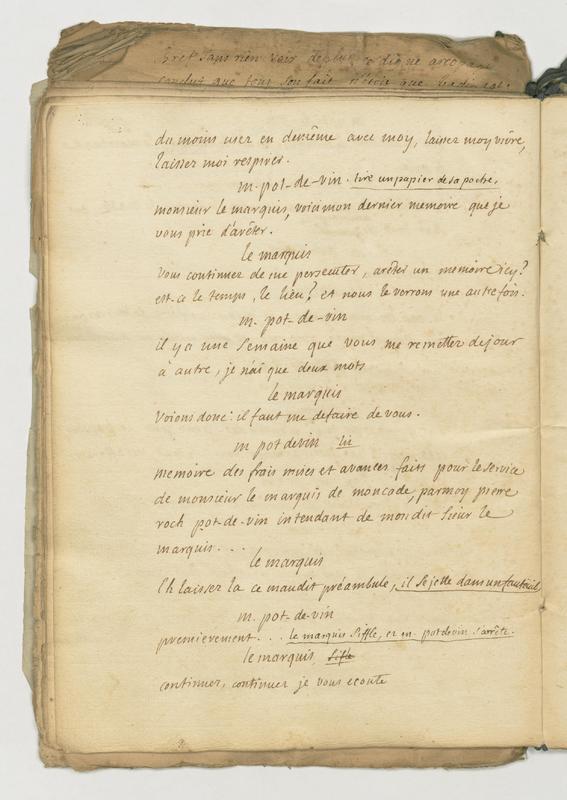 bref sans rien voir
conclut que tous son fait n'étoit que
du moins usez en de même avec moy, laissez moy vivre,
laissez moi respirer.
m. pot-de-vin. tire un papier de sa poche,
monsieur le marquis, voici mon dernier memoire que je
vous prie d'arêter.
le marquis
vous continuez de me persecuter, arêter un memoire icy?
est-ce le temps, le lieu? et nous le verrons une autre fois.
m. pot-de-vin
il y a une semaine que vous me remettez de jour
a autre, je n'ai que deux mots
le marquis
Voions donc: il faut me defaire de vous.
m pot devin lit
memoire des frais mises et avances faits pour le service
de monsieur le marquis de moncade, par moy pierre
roch pot-de-vin intendant de mondit sieur le
marquis...
le marquis
Eh laissez la ce maudit préambule, il se jette dans un fauteuil,
m. pot-de-vin
premierement... le marquis siffle, et m. pot devin s'arête.
le marquis, sifle
continuez, continuez je vous ecoute